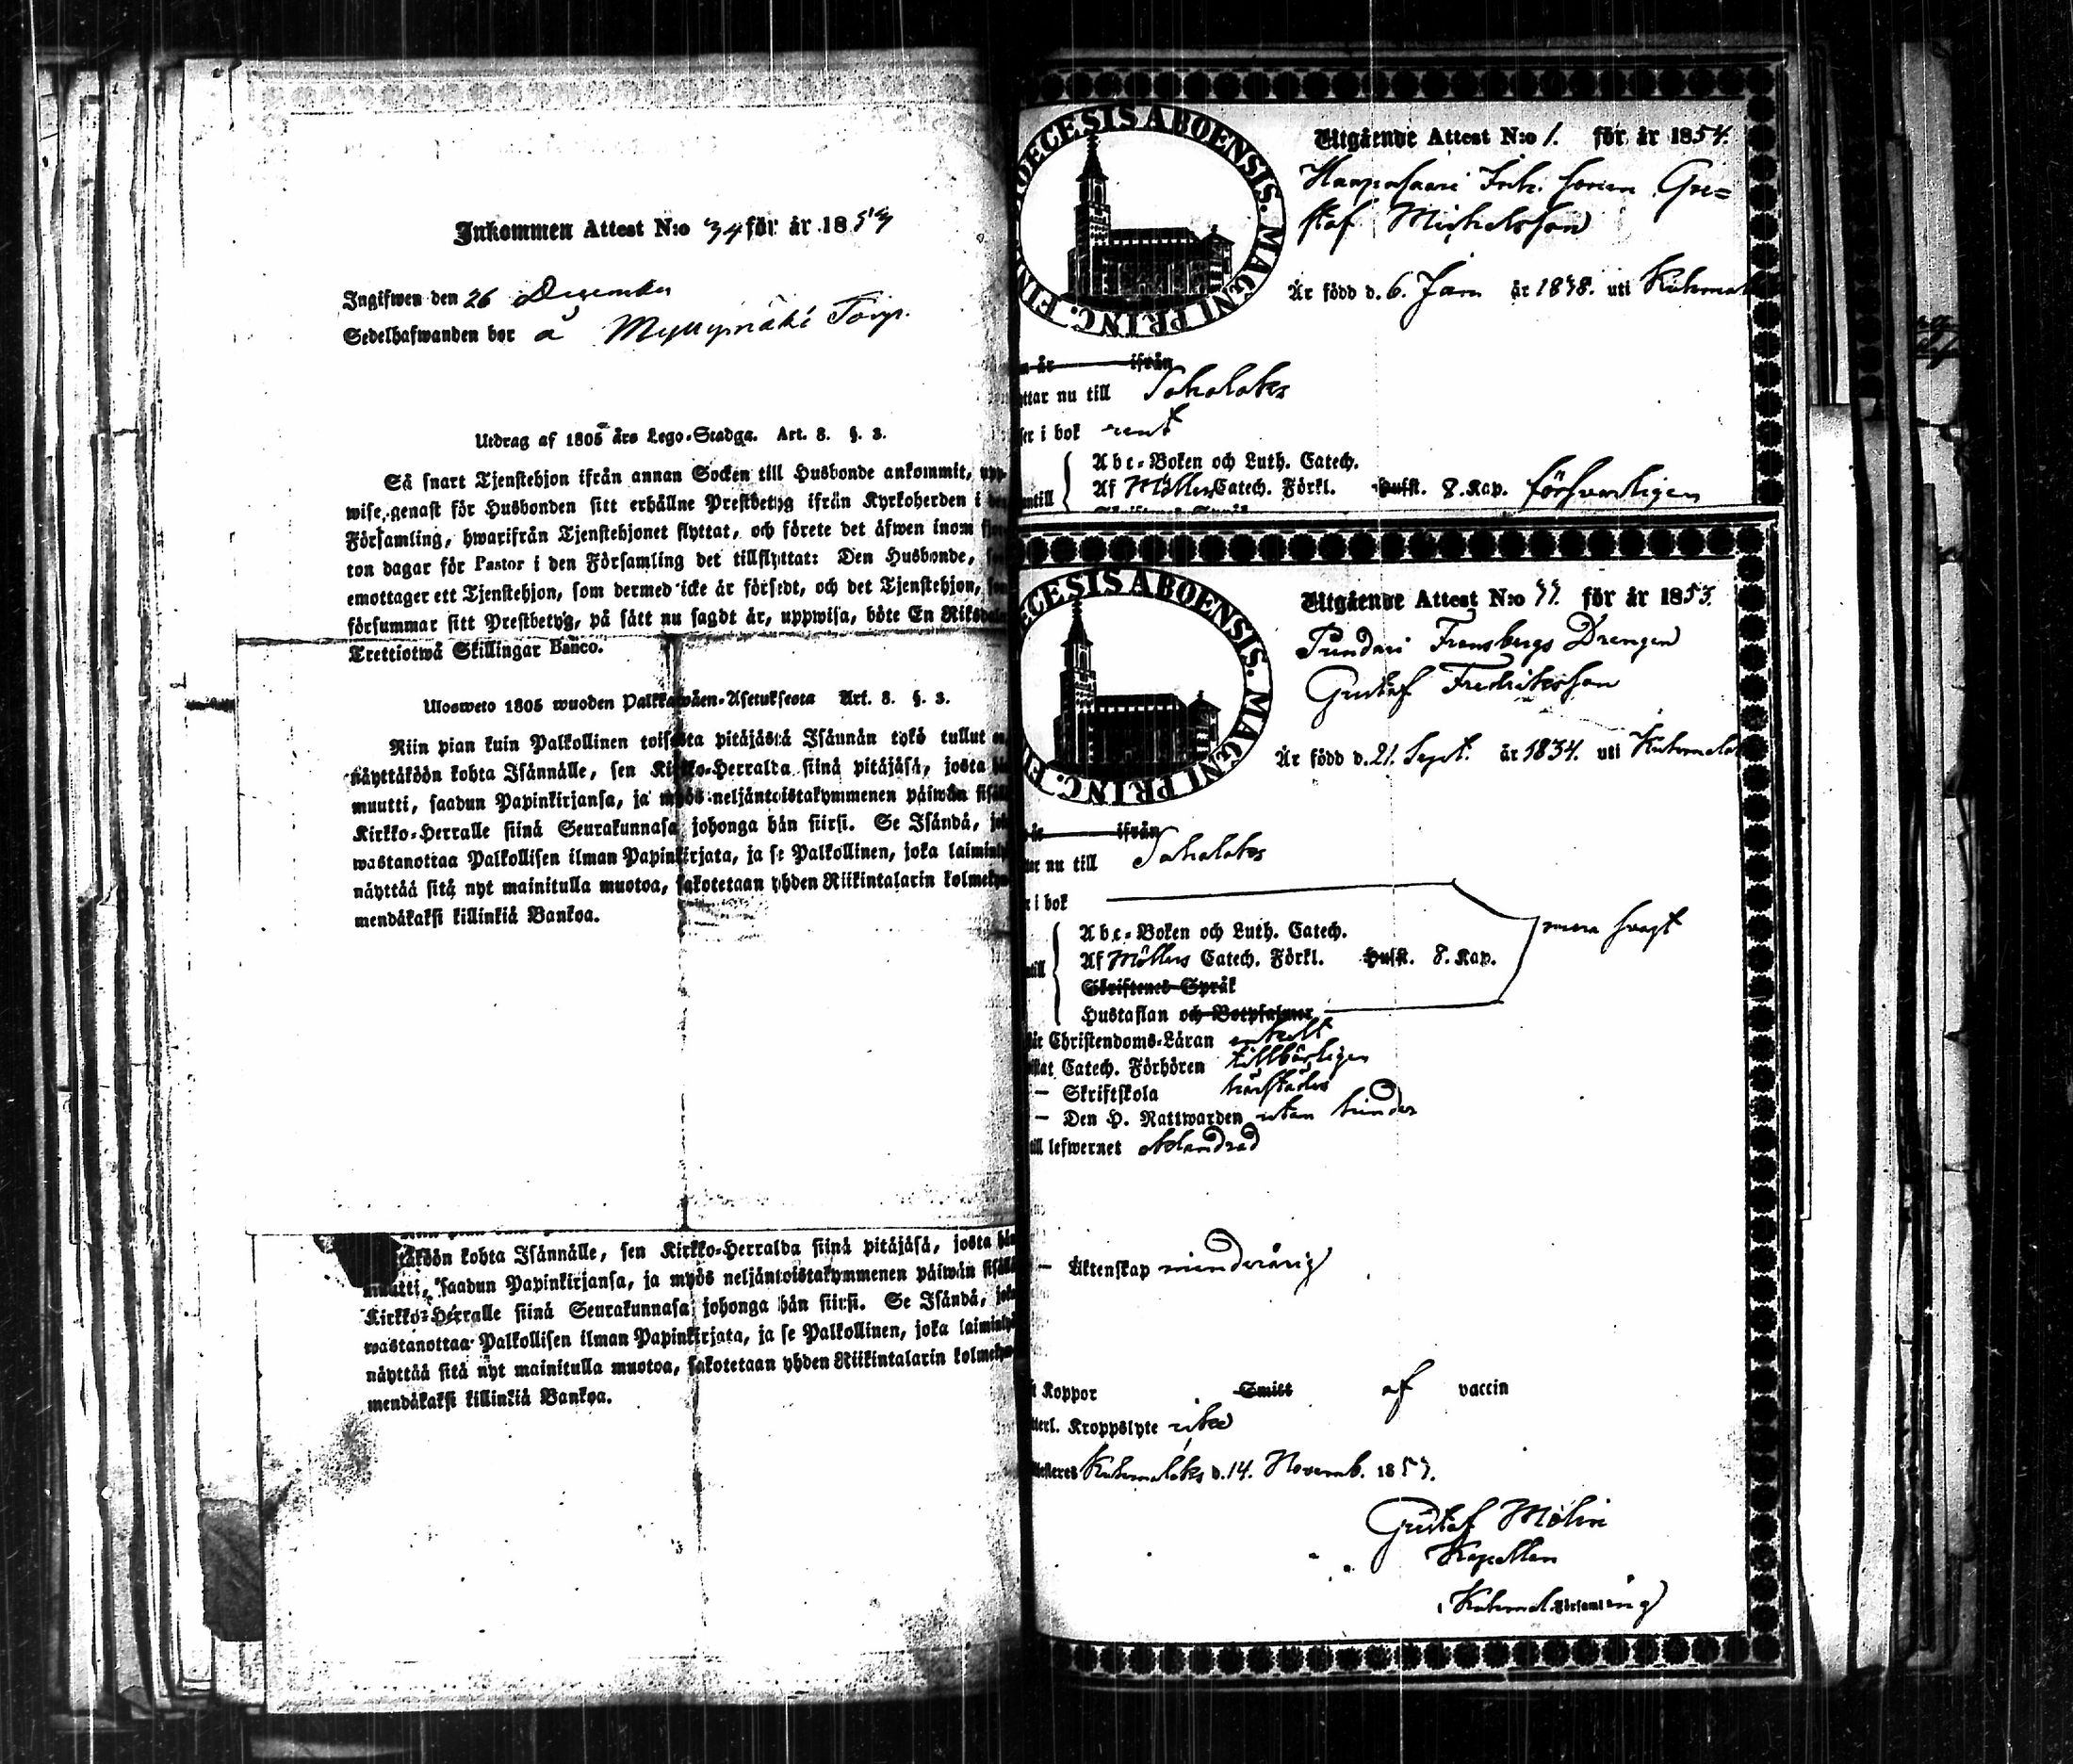 Inkommen Attest N:o 34 för år 1853
Ingifwen den 26 December
Sedelhafwanden bor å Myllymäki Torp.
Utdrag af 1805 års Lego-Stadga. Art. 8. §. 3.
Så snart Tjenstehjon ifrån annan Socken till Husbonde ankommit, upp-
wise, genast för Husbonden sitt erhållne Prestbetyg ifrån Kyrkoherden i den
Församling, hwarifrån Tjenstehjonet flyttat, och förete det äfwen inom
ton dagar för Pastor i den Församling det tillflyttat: Den Husbonde,
emottager ett Tjenstehjon, som dermed icke är försedt, och det Tjenstehjon,
försummar sitt Prestbetyg, på sätt nu sagdt är, uppwisa, böte En Riksdaler
Trettiotwå Skillingar Banco.
Ulosweto 1805 wuoden Palkkawäen-Asetuksesta Art. 8. §. 3.
Niin pian kuin Palkollinen toisesta pitäjästä Isännän tykö tullut on,
näyttäköön kohta Isännälle, sen Kirkko-Herralda siinä pitäjäsä, josta hän
muutti, saadun Papinkirjansa, ja myös neljäntoistakymmenen päiwän sisällä
Kirkko-Herralle siinä Seurakunnasa johonga hän siirsi. Se Isändä, joka
wastanottaa Palkollisen ilman Papinkirjata, ja se Palkollinen, joka laiminlyö
näyttää sitä nyt mainitulla muotoa, sakotetaan yhden Riikintalarin kolmekym-
mendäkaksi killinkiä Bankoa.
täköön kohta Isännälle, sen Kirkko-Herralda siinä pitäjäsä, josta hän
muutti, saadun Papinkirjansa, ja myös neljäntoistakymmenen päiwän sisällä
Kirkko-Herralle siinä Seurakunnasa johonga hän siirsi. Se Isändä, joka
wastanottaa Palkollisen ilman Papinkirjata, ja se Palkollinen, joka laiminlyö
näyttää sitä nyt mainitulla muotoa, sakotetaan yhden Riikintalarin kolmekym-
mendäkaksi killinkiä Bankoa.
DIOECESIS ABOENSIS. MAGNI PRINC. FIN
Utgående Attest N:o 1. för år 1854.
Haapasaari Inh. sonen Gu=
staf Michelsson
Är född d. 6. Jan år 1838. uti Kuhmal
år ifrån
ttar nu till Sahalaks
ser i bok rent
Abc-Boken och Luth. Catech.
Af Möllers Catech. Förkl. Husst. 8. Kap. försvarligen
antill
ECESIS ABOENSIS. MAGNI PRINC. FI
Utgående Attest N:o 77. för år 1853.
Pundari Fransbergs Drengen
Gustaf Fredriksson
Är född d. 21. Sept. år 1834. uti Kuhmalak
år ifrån
tar nu till Sahalaks
r i bok
Abc-Boken och Luth. Catech.
Af Möllers Catech. Förkl. Husst. 8. Kap.
mera svagt
Skriftenes Språk
Hustaflan och Botpsalmer
Christendoms-Läran enkelt
stat Catech. Förhören tillbörligen
— Skriftskola härstädes
— Den H. Nattwarden utan hinder
till lefwernet oklandrad
— Äktenskap minderårig
Koppor Smitt af vaccin
terl. Kroppslyte utan
esteres Kuhmalaks d. 14. Novemb. 1853.
Gustaf Molin
Kapellan
i Kuhmal. Församling